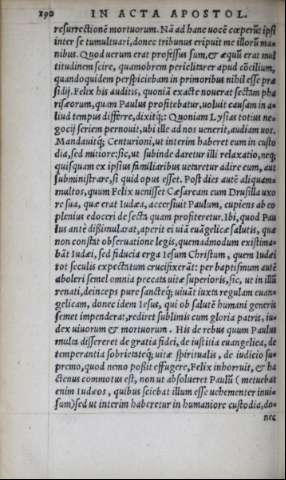 190 IN ACTA APOSTOL.
resurrectionẽ mortuorum. Nã ad hanc uocẽ cœperũt ipsi
inter se tumultuari, donec tribunus eripuit me illorũ ma-
nibus. Quod uerum erat professus sum, & æquũ erat mul
titudinem scire, quamobrem periclitarer apud cõcilium,
quandoquidem perspiciebam in primoribus nihil esse præ
sidij. Felix his auditis, quoniã exacte nouerat sectam pha
risæorum, quam Paulus profitebatur, uoluit causam in a-
liud tempus differre, dixitq́;: Quoniam Lysias totius ne-
gocij seriem pernouit, ubi ille ad nos uenerit, audiam uos.
Mandauitq́; Centurioni, ut interim haberet eum in custo
dia, sed mitiore: sic, ut subinde daretur illi relaxatio, neq;
quisquam ex ipsius familiaribus uetaretur adire eum, aut
subministrare, si quid opus esset. Post dies autẽ aliquam-
multos, quum Felix uenisset Cæsaream cum Drusilla uxo
re sua, quæ erat Iudæa, accersiuit Paulum, cupiens ab eo
plenius edoceri de secta quam profiteretur. Ibi, quod Pau
lus ante dißimularat, aperit ei uiã euãgelicæ salutis, quæ
non constat obseruatione legis, quemadmodum existima-
bãt Iudæi, sed fiducia erga Iesum Christum, quem Iudæi
tot seculis expectatum crucifixerãt: per baptismum autẽ
aboleri semel omnia peccata uitæ superioris, sic, ut in illũ
renati, deinceps pure sancteq́; uiuãt iuxta regulam euan-
gelicam, donec idem Iesus, qui ob salutẽ humani generis
semet impenderat, rediret sublimis cum gloria patris, iu-
dex uiuorum & mortuorum. His de rebus quum Paulus
multa dissereret de gratia fidei, de iustitia euangelica, de
temperantia sobrietateq́; uitæ spiritualis, de iudicio su-
premo, quod nemo poßit effugere, Felix inhorruit, & ha
ctenus commotus est, non ut absolueret Paulũ (metuebat
enim Iudæos, quibus sciebat illum esse uehementer inui-
sum) sed ut interim haberetur in humaniore custodia, do-
nec